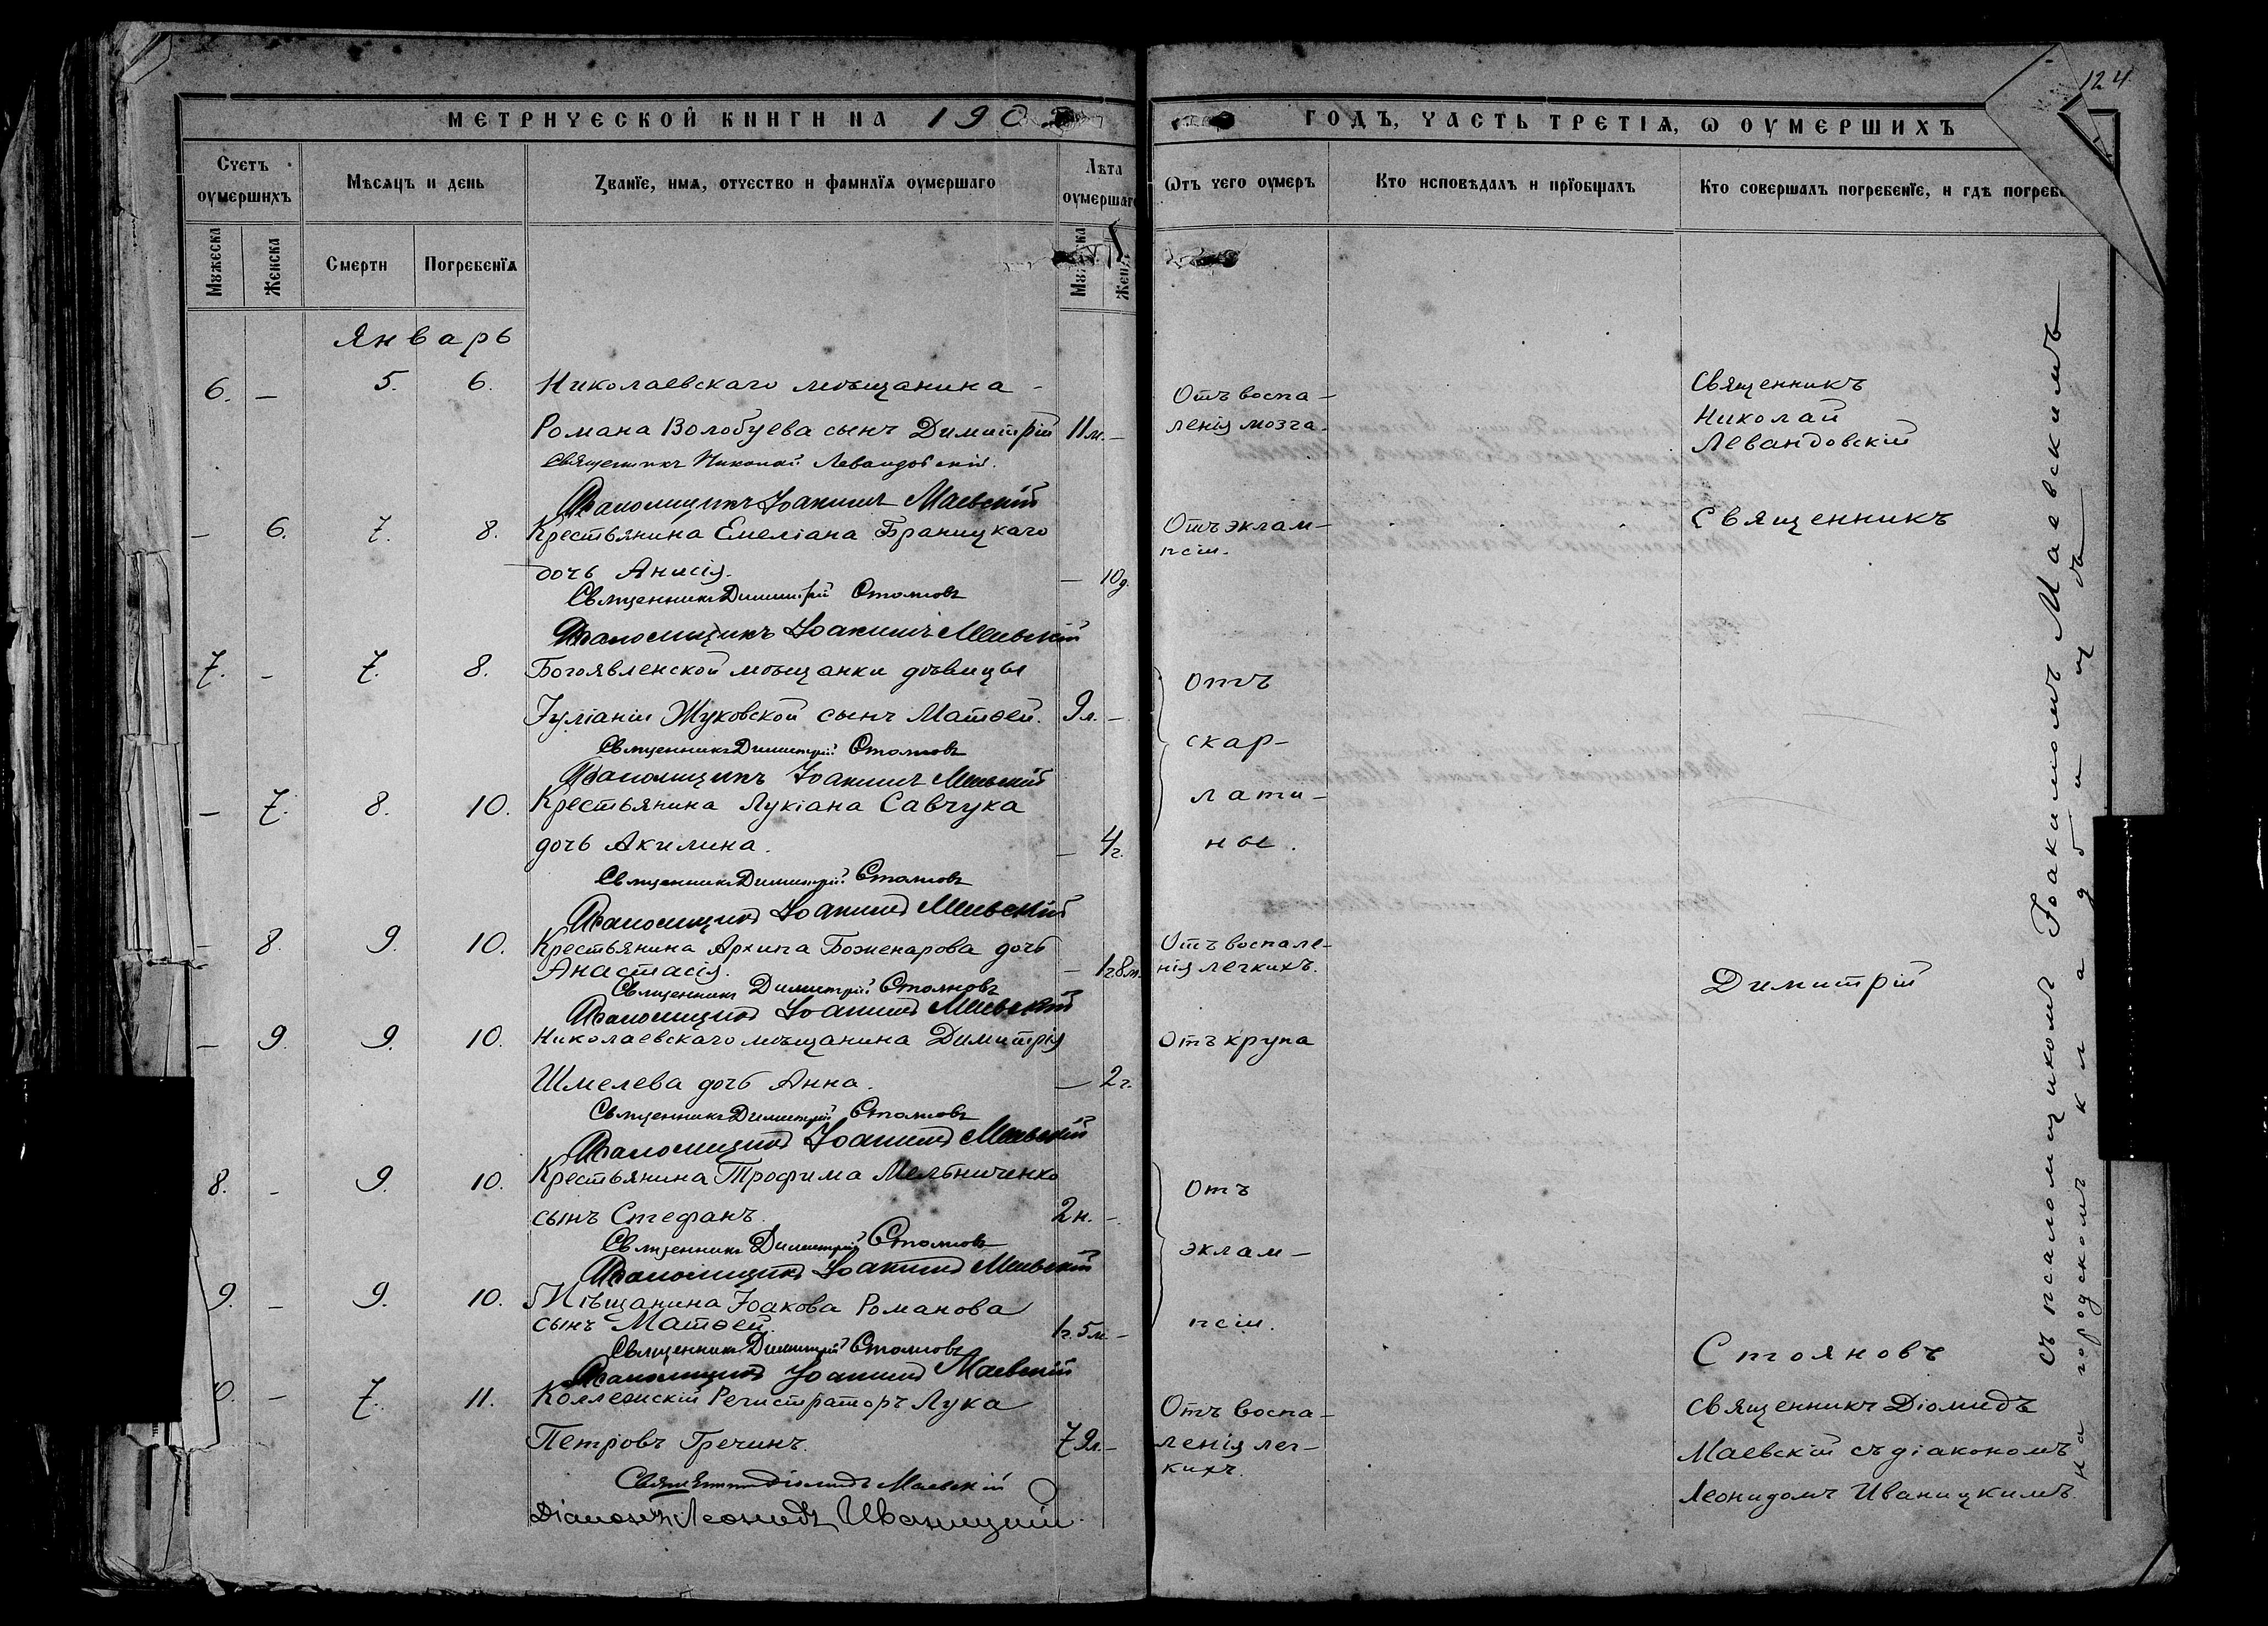 124
МЕТРИЧЕСКОЙ КНИГИ НА 190
ГОДЪ, ЧАСТЬ ТРЕТІѦ, Ѡ ОУМЕРШИХЪ
Счетъ оумершихъ
Мѣсяцъ и день
Званїе, имѧ, отчество и фамилїѧ оумершаго
Лѣта оумершаг
Мужеска
Женска
Смерти
Погребенїѧ
Женс
Ѿтъ чего оумеръ
Кто исповѣдалъ и прїобщалъ
Кто совершалъ погребенїе, и гдѣ погреб
Январь
6. — 5. 6. Николаевскаго мѣщанина
Романа Волобуева сынъ Димитрій 11м. —
Священникъ Николай Левандовскій.
Псаломщикъ Іоакимъ Маевскій
— 6. 7. 8. Крестьянина Емеліана Браницкаго
дочь Анисія. — 10д.
Священникъ Димитрій Стояновъ
Псаломщикъ Іоакимъ Маевскій
7. — 7. 8. Богоявленской мѣщанки дѣвицы
Іуліаніи Жуковской сынъ Матѳей. 9л. —
Священникъ Димитрій Стояновъ
Псаломщикъ Іоакимъ Маевскій
— 7. 8. 10. Крестьянина Лукіана Савчука
дочь Акилина. — 4г.
Священникъ Димитрій Стояновъ
Псаломщикъ Іоакимъ Маевскій
— 8. 9. 10. Крестьянина Архипа Боженарова дочь
Анастасія. — 1г8м.
Священникъ Димитрій Стояновъ
Псаломщикъ Іоакимъ Маевскій
— 9. 9. 10. Николаевскаго мѣщанина Димитрія
Шмелева дочь Анна. — 2г.
Священникъ Димитрій Стояновъ
Псаломщикъ Іоакимъ Маевскій
8. — 9. 10. Крестьянина Трофима Мельниченко
сынъ Стефанъ. 2н. —
Священникъ Димитрій Стояновъ
Псаломщикъ Іоакимъ Маевскій
9. — 9. 10. Мѣщанина Іоакова Романова
сынъ Матѳей. 1г.5м. —
Священникъ Димитрій Стояновъ
Псаломщикъ Іоакимъ Маевскій
0. — 7. 11. Коллежскій Регистраторъ Лука
Петровъ Гречинъ. 79л. —
Священникъ Діомидъ Маевскій
Діаконъ Леонидъ Иваницкій
Отъ воспа-
ленія мозга.
Отъ эклам-
псіи.
Отъ
скар-
лати-
ны.
Отъ воспале-
нія легкихъ.
Отъ крупа
Отъ
эклам-
псіи.
Отъ воспа-
ленія лег-
кихъ.
Священникъ
Николай
Левандовскій
Священникъ
Димитрій
Стояновъ
священникъ Діомидъ
Маевскій съ діакономъ
Леонидомъ Иваницкимъ
съ псаломщикомъ Іоакимомъ Маевскимъ
на городскомъ кладбищѣ